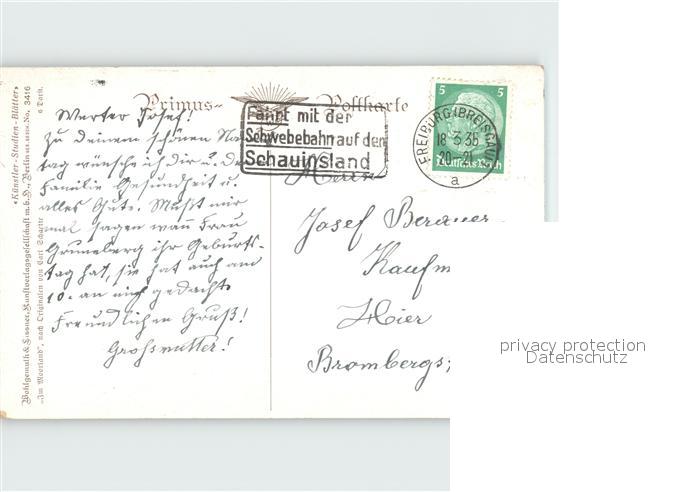 Primus- Postkarte
Fahrt mit der
Schwebebahn auf den
Schauinsland
5 5
Deutsches Reich
FREIBURG (BREISGAU)
18.3.35
20-21
a
Werter Josef!
zu deinem schönen Na
tag wünsche ich dir u. de
Familie Gesundheit u.
alles Gute. Mußt mir
mal sagen wann Frau
Grüneberg ihr Geburts-
tag hat, sie hat auch am
10. an mich gedacht.
Freundlichen Gruß!
Grossmutter!
Herrn
Josef Berauer
Kaufm
Hier
Brombergs
Wohlgemuth & Lissner, Kunstverlagsgesellschaft m. b. H., Berlin
„Künstler-Studien-Blätter“ No. 3416
„Im Moorland“, nach Originalen von Carl
6 Darst.
privacy protection
Datenschutz